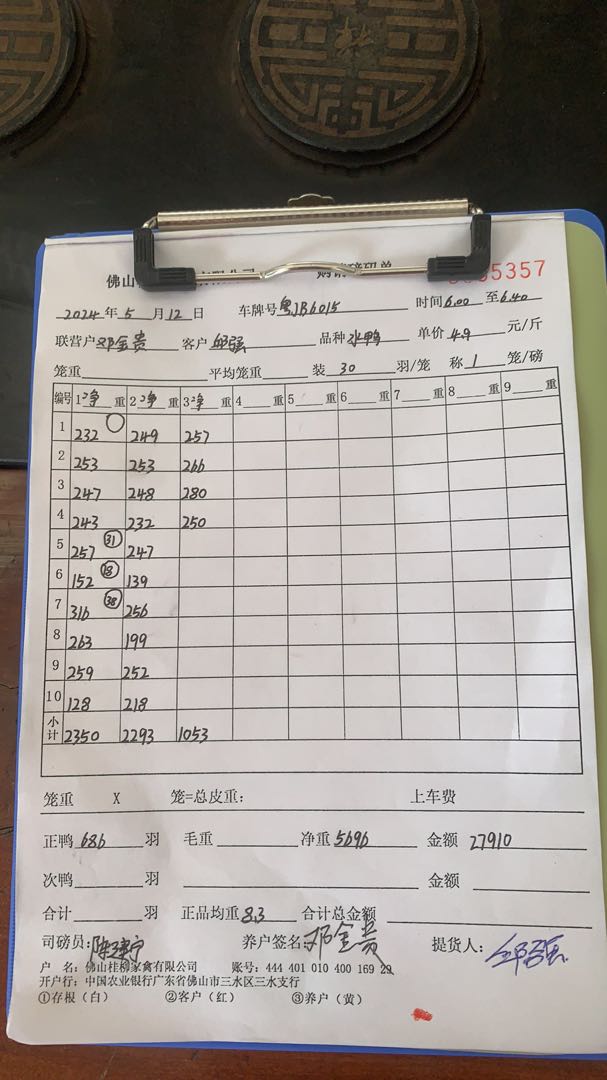 佛山
5357
2024年5月12日 车牌号粤JB6015 时间6.00至6.40
联营户邓金贵 客户邱强 品种水鸭 单价4.9元/斤
笼重 平均笼重 装30羽/笼 称1笼/磅
编号 1净重 2净重 3净重 4重 5重 6重 7重 8重 9重
1 232 249 257
2 253 253 266
3 247 248 280
4 243 232 250
5 257 31 247
6 152 18 139
7 316 38 256
8 263 199
9 259 252
10 128 218
小计 2350 2293 1053
笼重 X 笼=总皮重: 上车费
正鸭686羽 毛重 净重5696 金额27910
次鸭 羽 金额
合计 羽 正品均重8.3 合计总金额
司磅员: 养户签名:邓金贵 提货人:邱强
户 名:佛山桂柳家禽有限公司 账号:444 401 010 400 169 29
开户行:中国农业银行广东省佛山市三水区三水支行
①存根(白) ②客户(红) ③养户(黄)